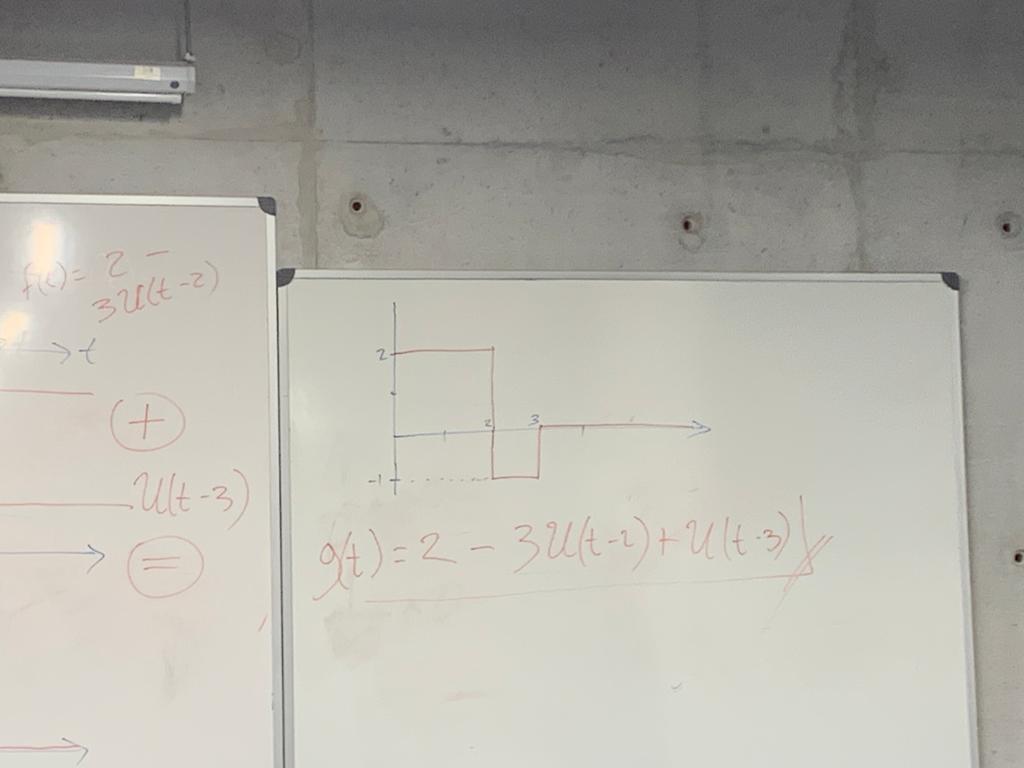 f(t) = 2 -
3U(t-2)
t
+
U(t-3)
=
2
2
3
-1
g(t) = 2 - 3U(t-2) + U(t-3)